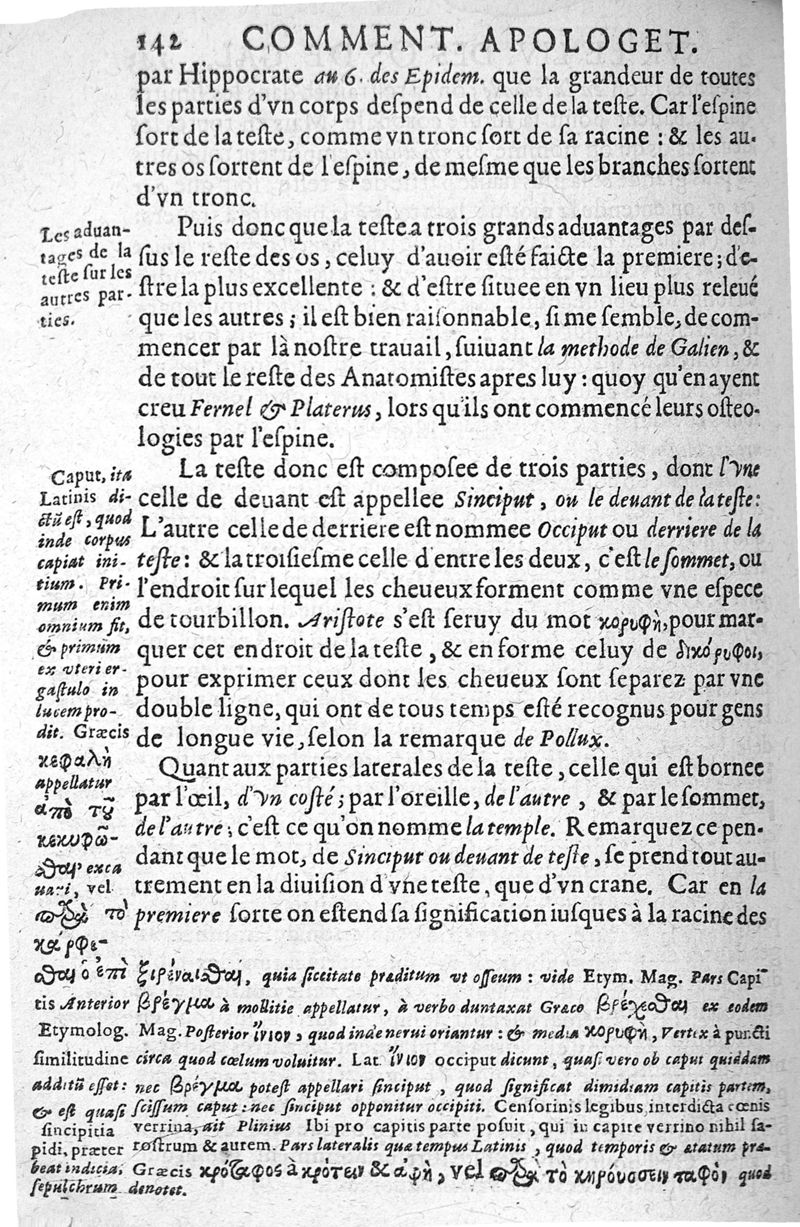 142 COMMENT. APOLOGET.
par Hippocrate au 6. des Epidem. que la grandeur de toutes
les parties d'vn corps deſpend de celle de la teſte. Car l'eſpine
ſort de la teſte, comme vn tronc ſort de ſa racine : & les au-
tres os ſortent de l'eſpine, de meſme que les branches ſortent
d'vn tronc.
Puis donc que la teſte a trois grands aduantages par deſ-
ſus le reſte des os, celuy d'auoir eſté faicte la premiere; d'e-
ſtre la plus excellente : & d'eſtre ſituee en vn lieu plus releué
que les autres ; il eſt bien raiſonnable, ſi me ſemble, de com-
mencer par là noſtre trauail, ſuiuant la methode de Galien, &
de tout le reſte des Anatomiſtes apres luy : quoy qu'en ayent
creu Fernel & Platerus, lors qu'ils ont commencé leurs oſteo-
logies par l'eſpine.
La teſte donc eſt compoſee de trois parties, dont l'vne
celle de deuant eſt appellee Sinciput, ou le deuant de la teſte:
L'autre celle de derriere eſt nommee Occiput ou derriere de la
teſte: & la troiſieſme celle d'entre les deux, c'eſt le ſommet, ou
l'endroit ſur lequel les cheueux forment comme vne eſpece
de tourbillon. Ariſtote s'eſt ſeruy du mot κορυφὴ, pour mar-
quer cet endroit de la teſte, & en forme celuy de δικόρυφοι,
pour exprimer ceux dont les cheueux ſont ſeparez par vne
double ligne, qui ont de tous temps eſté recognus pour gens
de longue vie, ſelon la remarque de Pollux.
Quant aux parties laterales de la teſte, celle qui eſt bornee
par l'œil, d'vn coſté; par l'oreille, de l'autre, & par le ſommet,
de l'autre; c'eſt ce qu'on nomme la temple. Remarquez ce pen-
dant que le mot, de Sinciput ou deuant de teſte, ſe prend tout au-
trement en la diuiſion d'vne teſte, que d'vn crane. Car en la
premiere ſorte on eſtend ſa ſignification iuſques à la racine des
Les aduan-
tages de la
teſte ſur les
autres par-
ties.
Caput, ita
Latinis di-
ctũ eſt, quod
inde corpus
capiat ini-
tium. Pri-
mum enim
omnium fit,
& primùm
ex vteri er-
gaſtulo in
lucem pro-
dit. Græcis
κεφαλὴ
appellatur
ἀπὸ τοῦ
κεκυφῶ-
σθαι exca
uari, vel
παρὰ τὸ
κάρφε-
σθαι ὅ ἐπὶ ξιρέναισθαι, quia ſiccitate præditum vt oſſeum : vide Etym. Mag. Pars Capi-
tis Anterior βρέγμα à mollitie appellatur, à verbo duntaxat Græco βρέχεσθαι ex eodem
Etymolog. Mag. Poſterior ἴνιον, quod inde nerui oriantur : & media κορυφὴ, Vertex à puncti
ſimilitudine circa quod cœlum voluitur. Lat. ἴνιον occiput dicunt, quaſi vero ob caput quiddam
additũ eſſet: nec βρέγμα poteſt appellari ſinciput, quod ſignificat dimidiam capitis partem,
& eſt quaſi ſciſſum caput : nec ſinciput opponitur occipiti. Cenſorinis legibus interdicta cœnis
ſincipitia verrina, ait Plinius Ibi pro capitis parte poſuit, qui in capite verrino nihil ſa-
pidi, præter roſtrum & aurem. Pars lateralis quæ tempus Latinis, quod temporis & ætatum præ-
beat indicia, Græcis κρόταφος à κρότειν & ἁφὴ, vel παρὰ τὸ κηρύσσειν ταφὸν quod
ſepulchrum denotet.